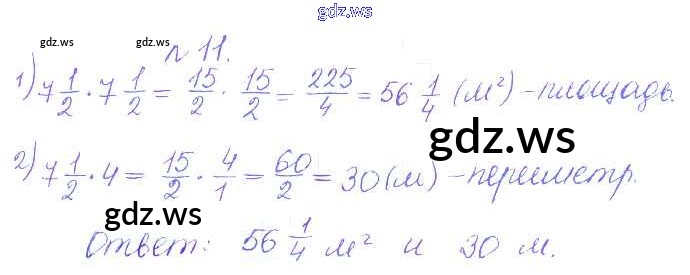 gdz.ws
gdz.ws gdz.ws № 11.
1) 7 1/2 · 7 1/2 = 15/2 · 15/2 = 225/4 = 56 1/4 (м²) - площадь.
gdz.ws
2) 7 1/2 · 4 = 15/2 · 4/1 = 60/2 = 30 (м) - периметр.
gdz.ws gdz.ws
Ответ: 56 1/4 м² и 30 м.